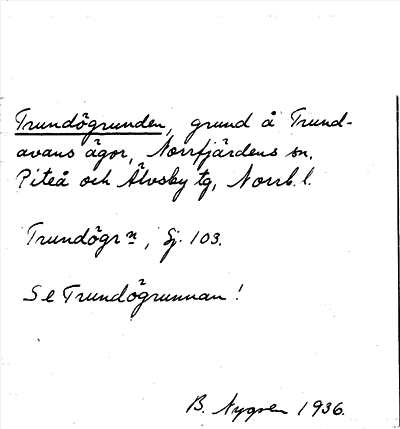 Trundögrunden, grund å Trund-
avans ägor, Norrfjärdens sn,
Piteå och Älvsby tg, Norrb. l.
Trundögrn, Sj. 103.
Se Trundögrunnan!
B. Nygren 1936.